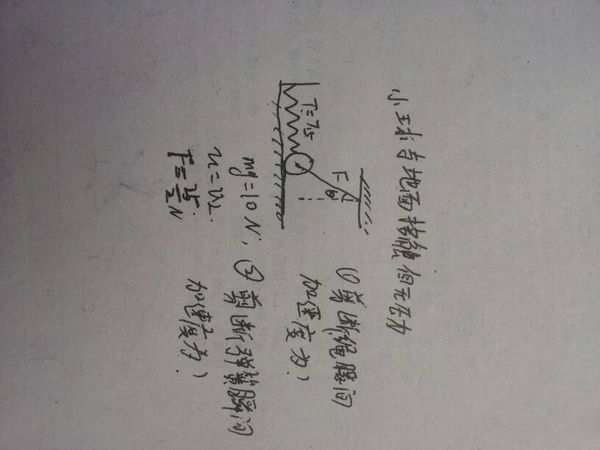 小球与地面接触但无压力
F
θ
T=7.5
①剪断绳瞬间
加速度为?
mg=10N.
②剪断弹簧瞬间
加速度为?
u=0.2.
F=25/2 N